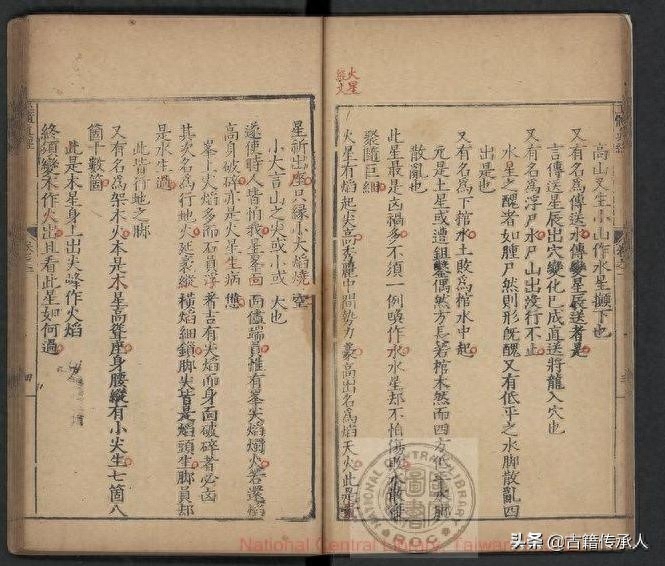 火星
經文
高山又生小山作水星擷下也
又有名為傳送水傳變星辰送者是
言傳送星辰出穴變化已成直送將龍入穴也
又有名為浮尸水尸山出沒行不止
水星之醜者如腫尸然則形旣醜又有低平之水脚散亂四
出是也
又有名為下棺水土敗為棺水中起
元是土星或遭鉏鑿偶然方長若棺木然而四方低平水脚
散亂也
此星最是凶禍多不須一例喚作水水星却不怕傷水散
聚隨巨細
火星有焰起尖高秀麗中間勢力豪高出名為焰天火此是
星祈出座只縁小大焰燒空
小大言山之尖或小或大也
遂使時人皆怕我星峯面面儘端員惟有峯尖焰燭火若還焰
高身破碎亦是火星生病憊
峯上尖焰多而石員淨者吉有尖焰而身面破碎者必凶
其次名為行地火延褱縱橫焰細鎖脚尖皆是焰頭生脚員却
是水生過
此皆行地之脚
又有名為架木火本是木星高聳座身腰縱有小尖生七箇八
箇十數箇
此是木星身上出尖峰作火焰
終須變木作火出且看此星如何過
四
NATIONAL CENTRAL LIBRARY
ROC
National Central Library, Taiwan
头条 @古籍传承人